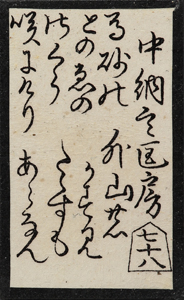 中納言匡房
七十八
高砂の
をのへの
さくら
咲にけり
外山の
かすみ
たゝすも
あらなん